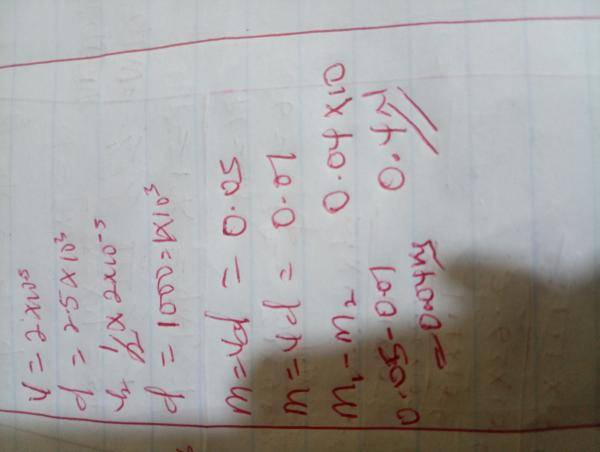 V = 2×10⁵
d = 2.5 × 10³
V₂ ½ × 2×10⁻⁵
d = 1000 = 1×10³
m = Vd = 0.05
m = Vd = 0.01
m₁ - m₂ 0.04 × 10
0.05 - 0.01 0.4N
= 0.04